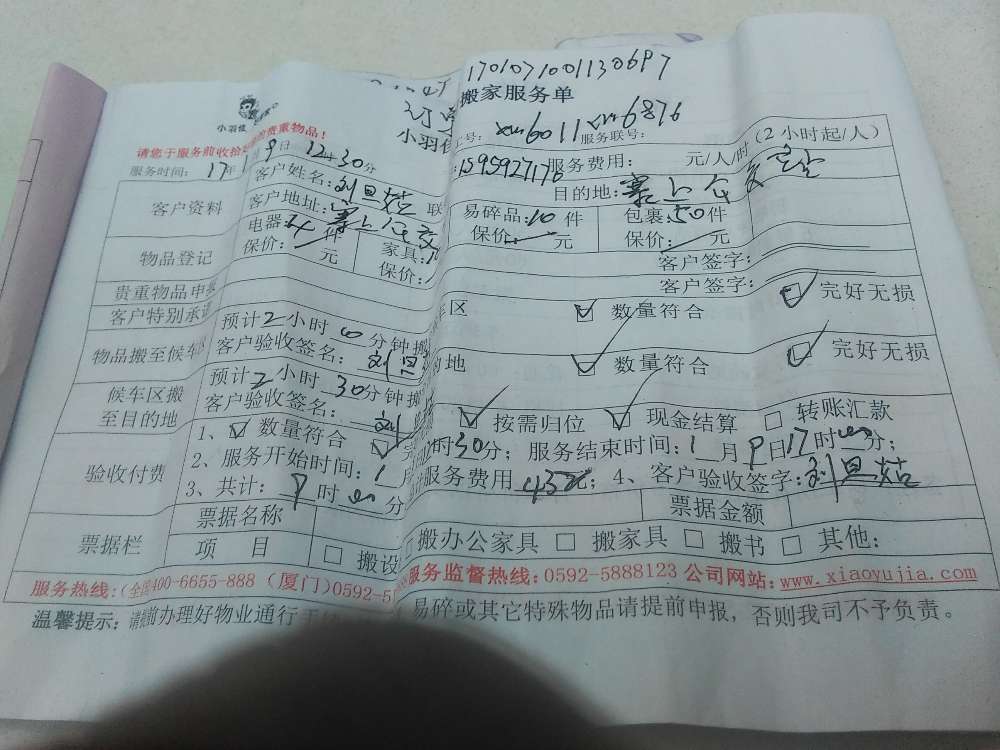 1701071001130697
搬家服务单
小羽佳
请您于服务前收拾 贵重物品！
号：xm6011 服务联号： xm6876
服务时间：17年 9日 12 30分
服务费用： 元/人/时（2小时起/人）
客户资料
客户姓名：刘旦菇 联 15959271 目的地：
客户地址：
物品登记
电器：4件 家具： 易碎品：10件 包裹：50件
保价： 元 保价： 保价： 元 保价： 元
客户签字：
贵重物品申
客户签字：
客户特别承
物品搬至候车区
预计2小时 分钟搬 车区 ☑ 数量符合 ☑ 完好无损
客户验收签名：刘旦
候车区搬至目的地
预计2小时 30分钟搬 的地 ☑ 数量符合 ☑ 完好无损
客户验收签名：刘
验收付费
1、☑ 数量符合 ☑ 完 ☑ 按需归位 ☑ 现金结算 □ 转账汇款
2、服务开始时间：1 时30分；服务结束时间：1月9日17时 分；
3、共计：9时 分 服务费用 元；4、客户验收签字：刘旦菇
票据栏
票据名称 票据金额
项 目 □ 搬设 搬办公家具 □ 搬家具 □ 搬书 □ 其他：
服务热线：（全国）400-6655-888（厦门）0592-5 服务监督热线：0592-5888123 公司网站：www.xiaoyujia.com
温馨提示：请提前办理好物业通行 易碎或其它特殊物品请提前申报，否则我司不予负责。